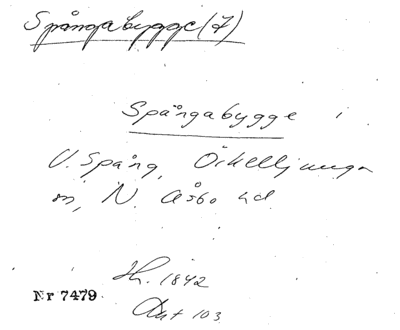 Spångabygge (7)
Spångabygge i
V. Spång, Örkelljunga
sn, N. Åsbo hd
Hh. 1842
Akt 103
Nr 7479